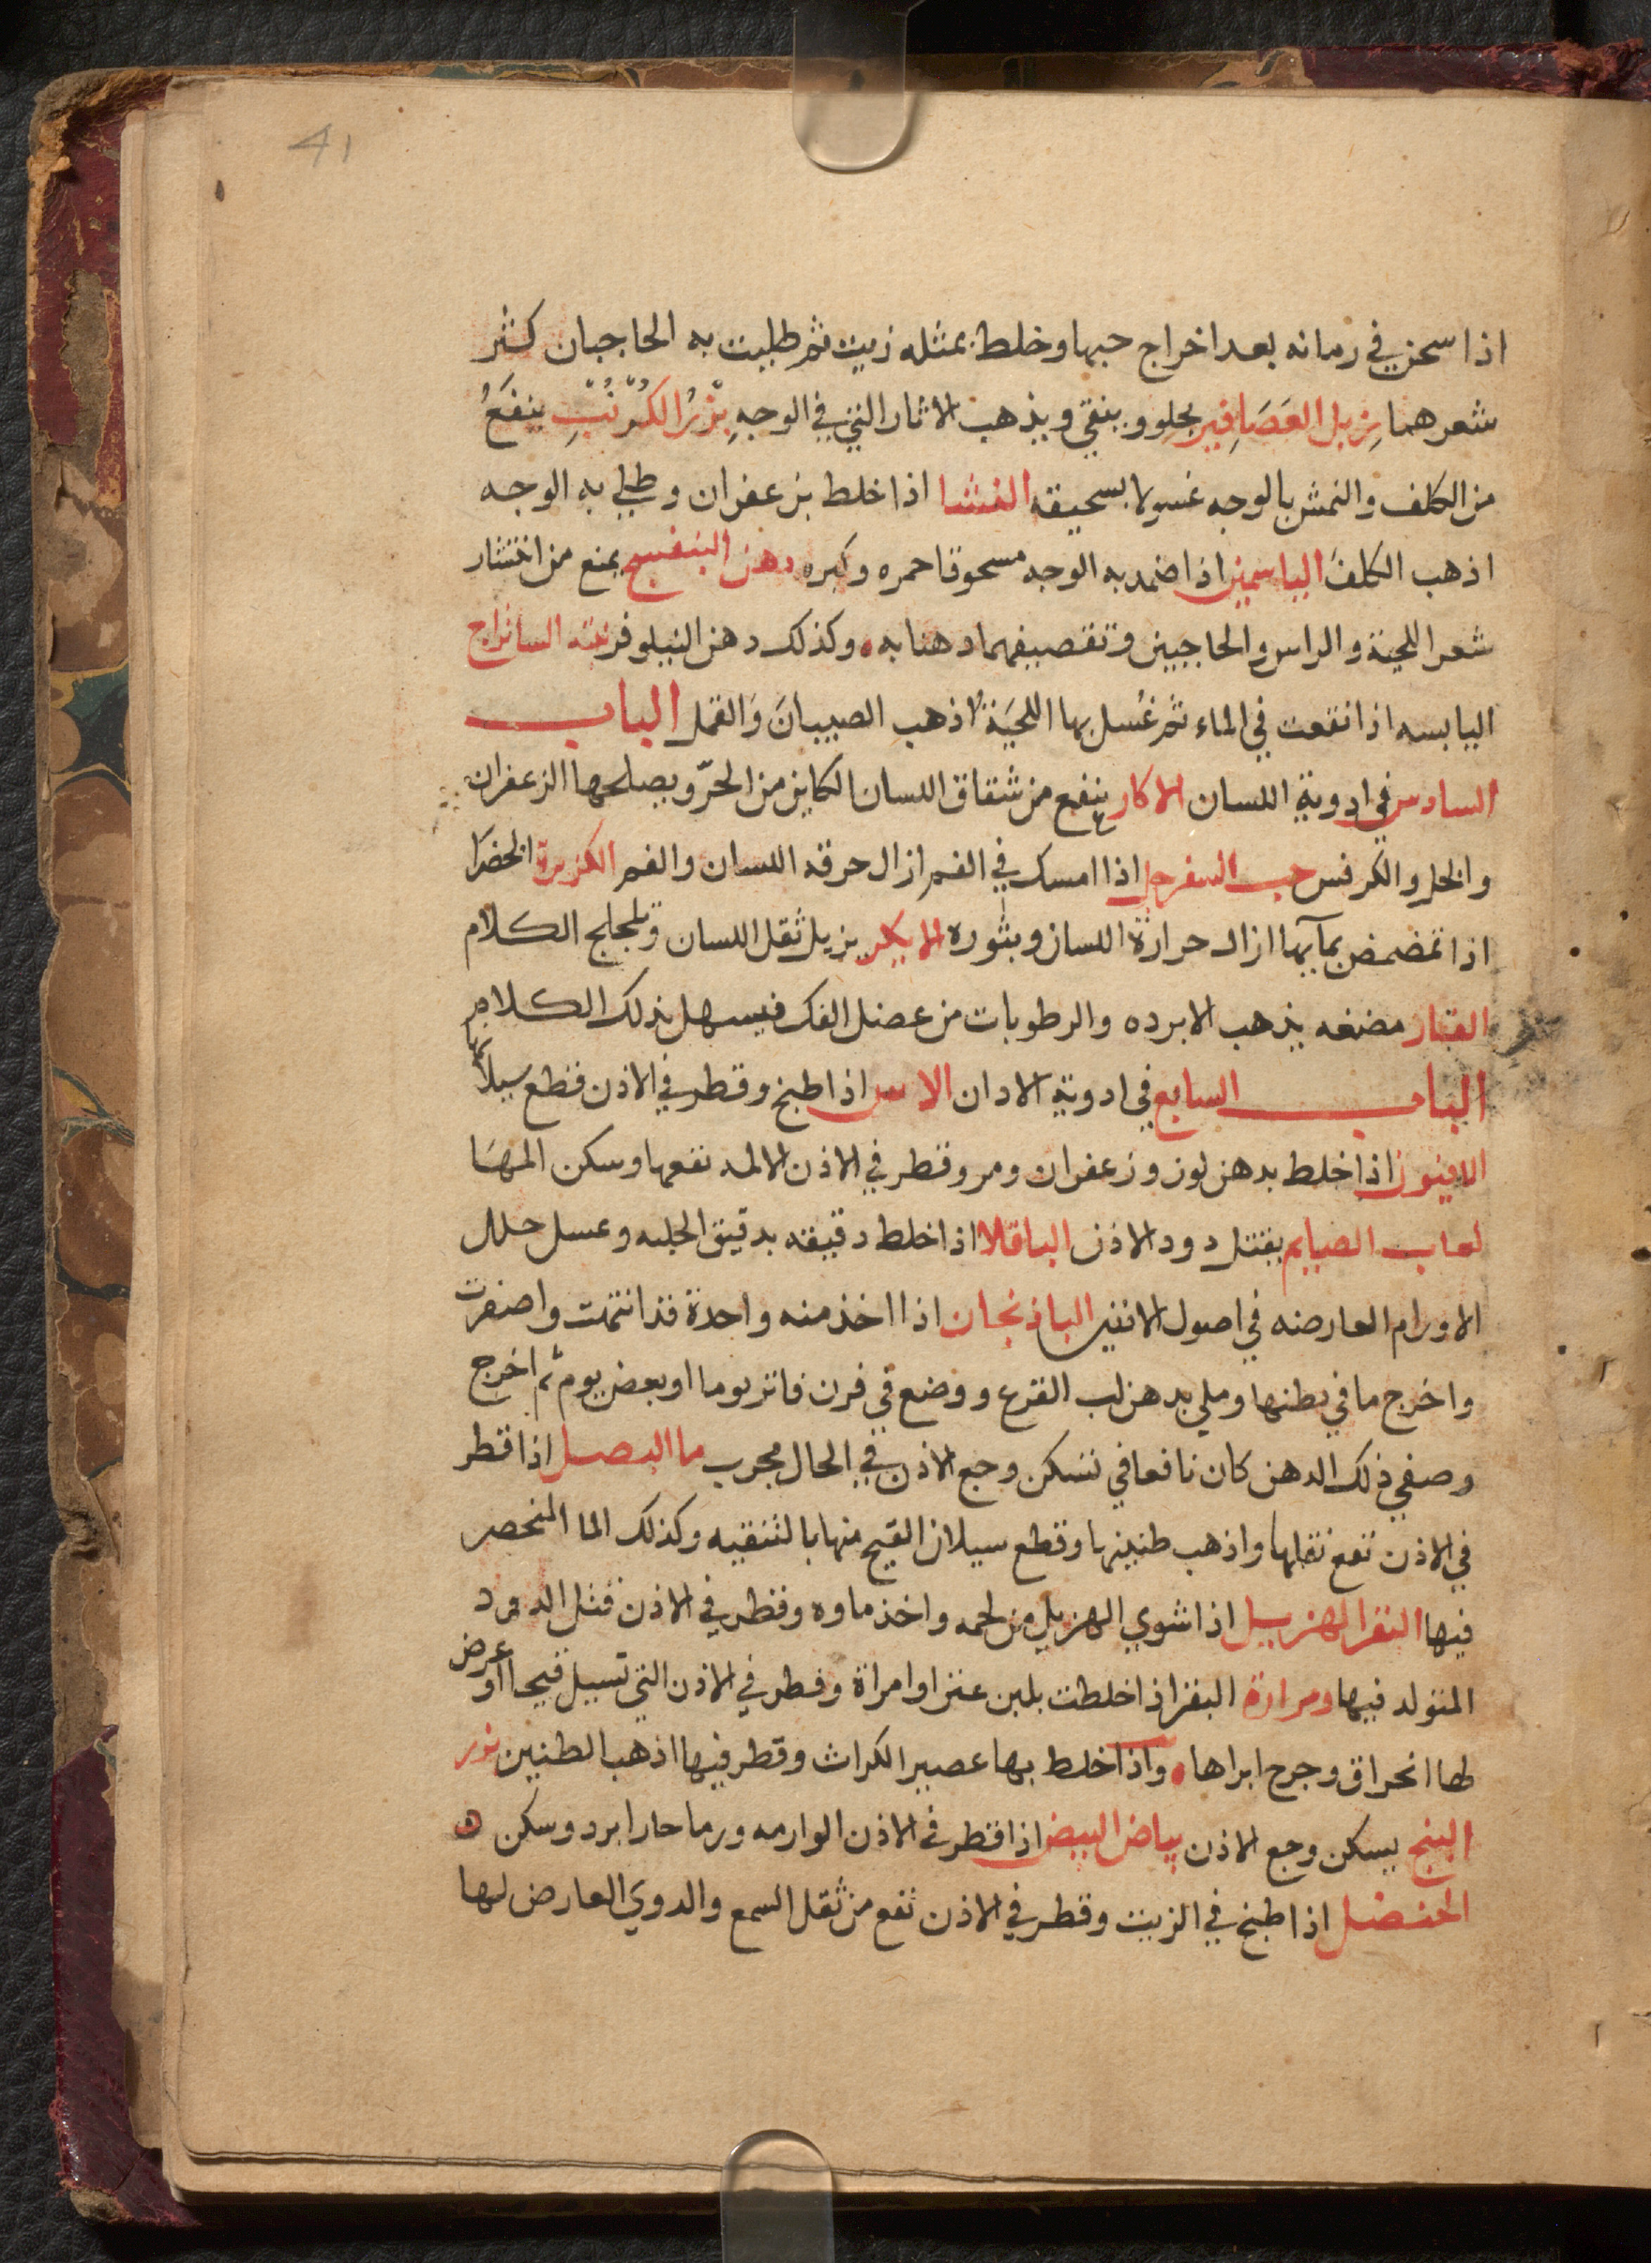 41
اذا سحن في رمانه بعد اخراج حبها وخلط بمثله زيت ثم طليت به الحاجبان كثر
شعرهما زبل العَصَافِير يجلو وينقي ويذهب الاثار التي في الوجهِ بزْرُ الكُرُنْبِ ينفَعُ
من الكلف والنمش بالوجه غسولا بسحيقه النشا اذا خلط بزعفران وطلي به الوجه
اذهب الكلفَ الياسمين اذا ضمد به الوجه مسحوقا حمره وكبره دهن البنفسج يمنع من انتشار
شعر اللحية والراس والحاجبين وتقصيفهما دهنا به وكذلك دهن النيلوفر
اليابسه اذا نقعت في الماء ثم غُسل بها اللحيَة اذهب الصيبانَ وَالقمل الباب
السادس في ادوية اللسان ينفع من شقاق اللسان الكاين من الحرّ ويصلحها الزعفران
والخل والكرفس حب السفرجل اذا امسك في الفم ازال حرقه اللسان والفم الكزبرة الخضرَا
اذا تمضمض بمآيها ازال حرارة اللسان وبثوره يزيل ثقل اللسان وتلجلج الكلام
مضغه يذهب الابرده والرطوبات من عضل الفك فيسهل بذلك الكلام
الباب السابع في ادوية الادان الاس اذا طبخ وقطر في الاذن قطع سيلانها
الافيون اذا خلط بدهن لوز وزعفران ومر وقطر في الاذن الالمه نفعها وسكن المهَا
لعاب الصايم يقتل دود الاذن الباقلا اذا خلط دقيقه بدقيق الحلبه وعسل حلل
الاورام العارضه في اصول الاذنين الباذنجان اذا اخذ منه واحدة قد انتهت واصفرت
واخرج ما في بطنها وملي بدهن لب القرع ووضع في فرن فاتر يوما او بعض يوم ثم اخرج
وصفي ذلك الدهن كان نافعا في تسكن وجع الاذن في الحال مجرب ما البصل اذا قطر
في الاذن نفع ثقلها واذهب طنينها وقطع سيلان القيح منها بالتنقيه وكذلك الما المنحصر
فيها اذا شوي الهزيل من لحمه واخذ ماوه وقطر في الاذن قتل الدود
المتولد فيها ومرارة البقر اذ اخلطت بلبن عنز او امراة وقطر في الاذن التي تسيل قيحا او عرض
لها انحراق وجرح ابراها واذا خلط بها عصير الكراث وقطر فيها اذهب الطنين بزر
البنج يسكن وجع الاذن بياض البيض اذا قطر في الاذن الوارمه ورما حارا برد وسكن ه
الحنضل اذا طبخ في الزيت وقطر في الاذن نفع من ثقل السمع والدوي العارض لها